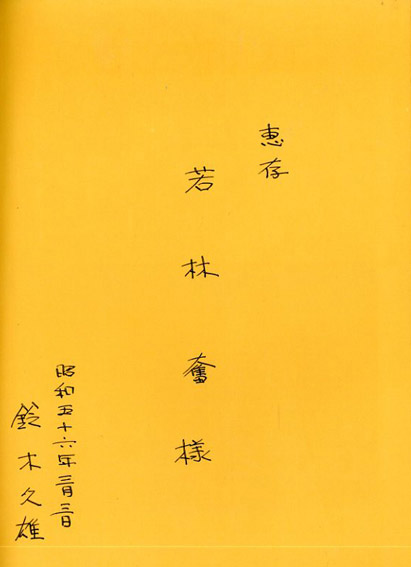 惠存
若林奮様
昭和五十六年三月三日
鈴木久雄